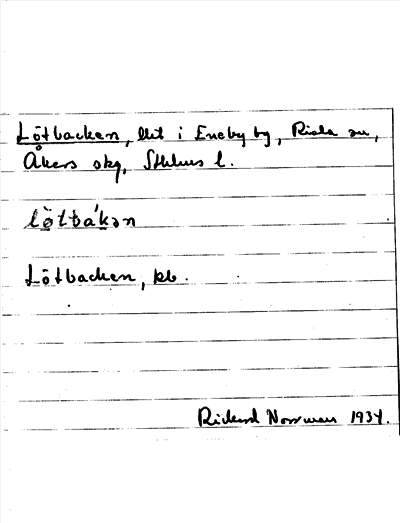 Lötbacken, lht i Eneby by, Riala sn,
Åkers skg, Sthlms l.
lö̀tbákən
Lötbacken, kb.
Rickard Norrman 1934.